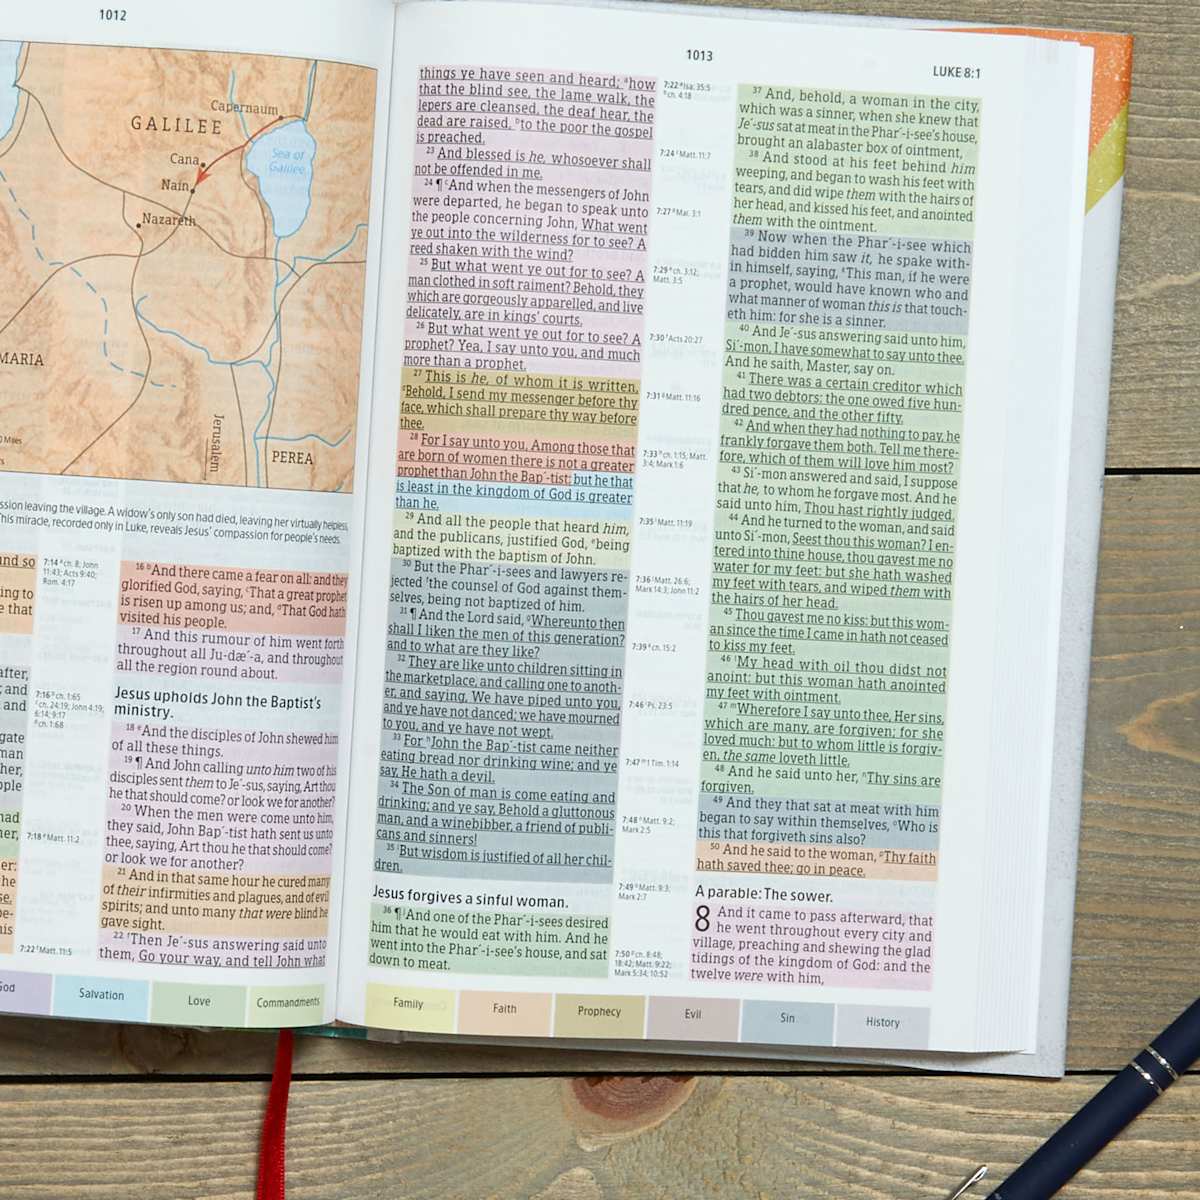 1012
Capernaum
GALILEE
Sea of
Galilee
Cana
Nain
Nazareth
MARIA
Jerusalem
PEREA
Miles
ssion leaving the village. A widow's only son had died, leaving her virtually helpless.
This miracle, recorded only in Luke, reveals Jesus' compassion for people's needs.
and so
ing to
e that
after,
; and
and
gate
man
her,
ople
had
her,
er:
he
se.
be-
his
7:14 ᵃ ch. 8; John
11:43; Acts 9:40;
Rom. 4:17
7:16 ᵇ ch. 1:65
ᶜ ch. 24:19; John 4:19;
6:14; 9:17
ᵈ ch. 1:68
7:18 ᵉ Matt. 11:2
7:22 ᶠ Matt. 11:5
16 ᵇAnd there came a fear on all: and they
glorified God, saying, ᶜThat a great prophet
is risen up among us; and, ᵈThat God hath
visited his people.
17 And this rumour of him went forth
throughout all Ju-dæ´-a, and throughout
all the region round about.
Jesus upholds John the Baptist's
ministry.
18 ᵉAnd the disciples of John shewed him
of all these things.
19 ¶ And John calling unto him two of his
disciples sent them to Je´-sus, saying, Art thou
he that should come? or look we for another?
20 When the men were come unto him,
they said, John Bap´-tist hath sent us unto
thee, saying, Art thou he that should come?
or look we for another?
21 And in that same hour he cured many
of their infirmities and plagues, and of evil
spirits; and unto many that were blind he
gave sight.
22 ᶠThen Je´-sus answering said unto
them, Go your way, and tell John what
God
Salvation
Love
Commandments
1013
LUKE 8:1
things ye have seen and heard; ᵃhow
that the blind see, the lame walk, the
lepers are cleansed, the deaf hear, the
dead are raised, ᵇto the poor the gospel
is preached.
23 And blessed is he, whosoever shall
not be offended in me.
24 ¶ ᶜAnd when the messengers of John
were departed, he began to speak unto
the people concerning John, What went
ye out into the wilderness for to see? A
reed shaken with the wind?
25 But what went ye out for to see? A
man clothed in soft raiment? Behold, they
which are gorgeously apparelled, and live
delicately, are in kings' courts.
26 But what went ye out for to see? A
prophet? Yea, I say unto you, and much
more than a prophet.
27 This is he, of whom it is written,
ᵈBehold, I send my messenger before thy
face, which shall prepare thy way before
thee.
28 For I say unto you, Among those that
are born of women there is not a greater
prophet than John the Bap´-tist: but he that
is least in the kingdom of God is greater
than he.
29 And all the people that heard him,
and the publicans, justified God, ᵉbeing
baptized with the baptism of John.
30 But the Phar´-i-sees and lawyers re-
jected ᶠthe counsel of God against them-
selves, being not baptized of him.
31 ¶ And the Lord said, ᵍWhereunto then
shall I liken the men of this generation?
and to what are they like?
32 They are like unto children sitting in
the marketplace, and calling one to anoth-
er, and saying, We have piped unto you,
and ye have not danced; we have mourned
to you, and ye have not wept.
33 For ʰJohn the Bap´-tist came neither
eating bread nor drinking wine; and ye
say, He hath a devil.
34 The Son of man is come eating and
drinking; and ye say, Behold a gluttonous
man, and a winebibber, a friend of publi-
cans and sinners!
35 ⁱBut wisdom is justified of all her chil-
dren.
Jesus forgives a sinful woman.
36 ¶ ʲAnd one of the Phar´-i-sees desired
him that he would eat with him. And he
went into the Phar´-i-see's house, and sat
down to meat.
7:22 ᵃ Isa. 35:5
ᵇ ch. 4:18
7:24 ᶜ Matt. 11:7
7:27 ᵈ Mal. 3:1
7:29 ᵉ ch. 3:12;
Matt. 3:5
7:30 ᶠ Acts 20:27
7:31 ᵍ Matt. 11:16
7:33 ʰ ch. 1:15; Matt.
3:4; Mark 1:6
7:35 ⁱ Matt. 11:19
7:36 ʲ Matt. 26:6;
Mark 14:3; John 11:2
7:39 ᵏ ch. 15:2
7:46 ˡ Ps. 23:5
7:47 ᵐ 1 Tim. 1:14
7:48 ⁿ Matt. 9:2;
Mark 2:5
7:49 ᵒ Matt. 9:3;
Mark 2:7
7:50 ᵖ ch. 8:48;
18:42; Matt. 9:22;
Mark 5:34; 10:52
37 And, behold, a woman in the city,
which was a sinner, when she knew that
Je´-sus sat at meat in the Phar´-i-see's house,
brought an alabaster box of ointment,
38 And stood at his feet behind him
weeping, and began to wash his feet with
tears, and did wipe them with the hairs of
her head, and kissed his feet, and anointed
them with the ointment.
39 Now when the Phar´-i-see which
had bidden him saw it, he spake with-
in himself, saying, ᵏThis man, if he were
a prophet, would have known who and
what manner of woman this is that touch-
eth him: for she is a sinner.
40 And Je´-sus answering said unto him,
Si´-mon, I have somewhat to say unto thee.
And he saith, Master, say on.
41 There was a certain creditor which
had two debtors: the one owed five hun-
dred pence, and the other fifty.
42 And when they had nothing to pay, he
frankly forgave them both. Tell me there-
fore, which of them will love him most?
43 Si´-mon answered and said, I suppose
that he, to whom he forgave most. And he
said unto him, Thou hast rightly judged.
44 And he turned to the woman, and said
unto Si´-mon, Seest thou this woman? I en-
tered into thine house, thou gavest me no
water for my feet: but she hath washed
my feet with tears, and wiped them with
the hairs of her head.
45 Thou gavest me no kiss: but this wom-
an since the time I came in hath not ceased
to kiss my feet.
46 ˡMy head with oil thou didst not
anoint: but this woman hath anointed
my feet with ointment.
47 ᵐWherefore I say unto thee, Her sins,
which are many, are forgiven; for she
loved much: but to whom little is forgiv-
en, the same loveth little.
48 And he said unto her, ⁿThy sins are
forgiven.
49 And they that sat at meat with him
began to say within themselves, ᵒWho is
this that forgiveth sins also?
50 And he said to the woman, ᵖThy faith
hath saved thee; go in peace.
A parable: The sower.
8 And it came to pass afterward, that
he went throughout every city and
village, preaching and shewing the glad
tidings of the kingdom of God: and the
twelve were with him,
Family
Faith
Prophecy
Evil
Sin
History